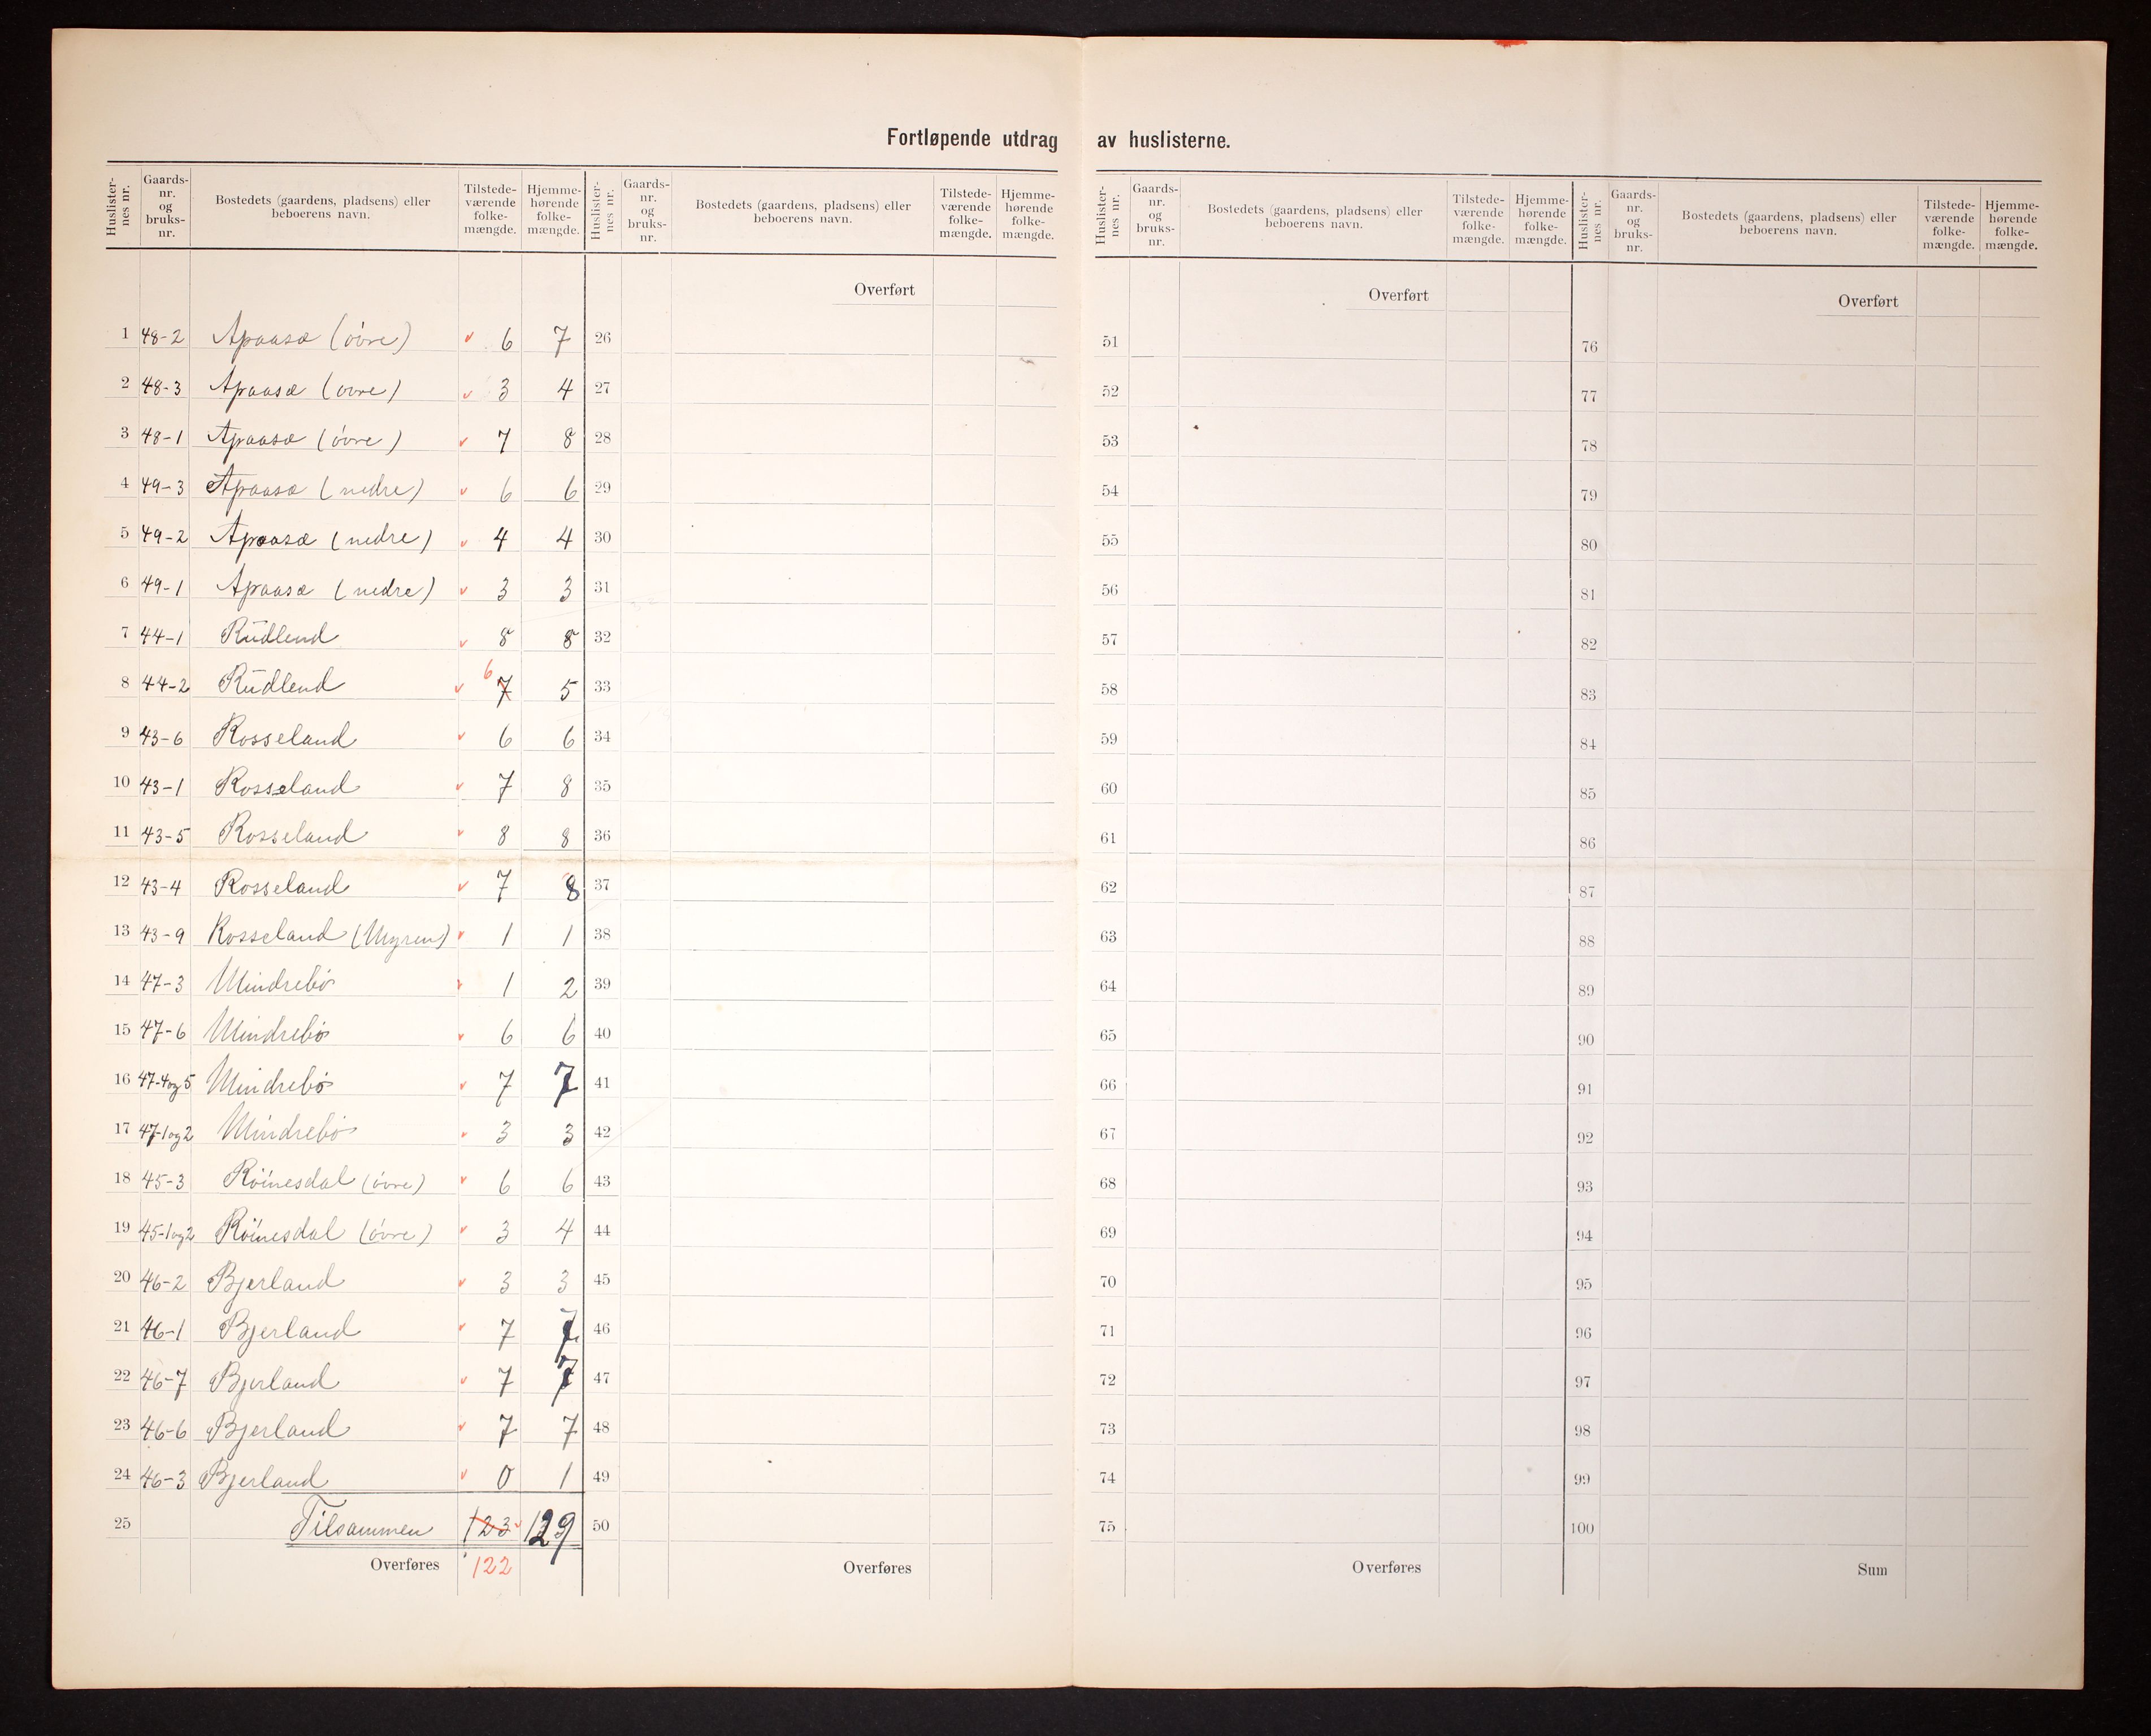 Fortløpende utdrag av huslisterne.
Huslister-nes nr. Gaards-nr. og bruks-nr. Bostedets (gaardens, pladsens) eller beboerens navn. Tilstede-værende folke-mængde. Hjemme-hørende folke-mængde. Huslister-nes nr. Gaards-nr. og bruks-nr. Bostedets (gaardens, pladsens) eller beboerens navn. Tilstede-værende folke-mængde. Hjemme-hørende folke-mængde. Huslister-nes nr. Gaards-nr. og bruks-nr. Bostedets (gaardens, pladsens) eller beboerens navn. Tilstede-værende folke-mængde. Hjemme-hørende folke-mængde. Huslister-nes nr. Gaards-nr. og bruks-nr. Bostedets (gaardens, pladsens) eller beboerens navn. Tilstede-værende folke-mængde. Hjemme-hørende folke-mængde.
Overført Overført Overført
1 48-2 Apaasæ (óvre) 6 7 26 51 76
2 48-3 Apaasæ (ovre) 3 4 27 52 77
3 48-1 Apaasæ (óvre) 7 8 28 53 78
4 49-3 Apaasæ (nedre) 6 6 29 54 79
5 49-2 Apaasæ (nedre) 4 4 30 55 80
6 49-1 Apaasæ (nedre) 3 3 31 56 81
7 44-1 Rudlend 8 8 32 57 82
8 44-2 Rudlend 7 6 5 33 58 83
9 43-6 Rosseland 6 6 34 59 84
10 43-1 Rosseland 7 8 35 60 85
11 43-5 Rosseland 8 8 36 61 86
12 43-4 Rosseland 7 8 37 62 87
13 43-9 Rosseland (Myren) 1 1 38 63 88
14 47-3 Mindrebó 1 2 39 64 89
15 47-6 Mindrebø 6 6 40 65 90
16 47-4og5 Mindrebø 7 7 41 66 91
17 47-1og2 Mindrebó 3 3 42 67 92
18 45-3 Róinesdal (óvre) 6 6 43 68 93
19 45-1og2 Róinesdal (óvre) 3 4 44 69 94
20 46-2 Bjerland 3 3 45 70 95
21 46-1 Bjerland 7 7 46 71 96
22 46-7 Bjerland 7 7 47 72 97
23 46-6 Bjerland 7 7 48 73 98
24 46-3 Bjerland 0 1 49 74 99
25 Tilsammen 123 129 50 75 100
Overføres 122 Overføres Overføres Sum